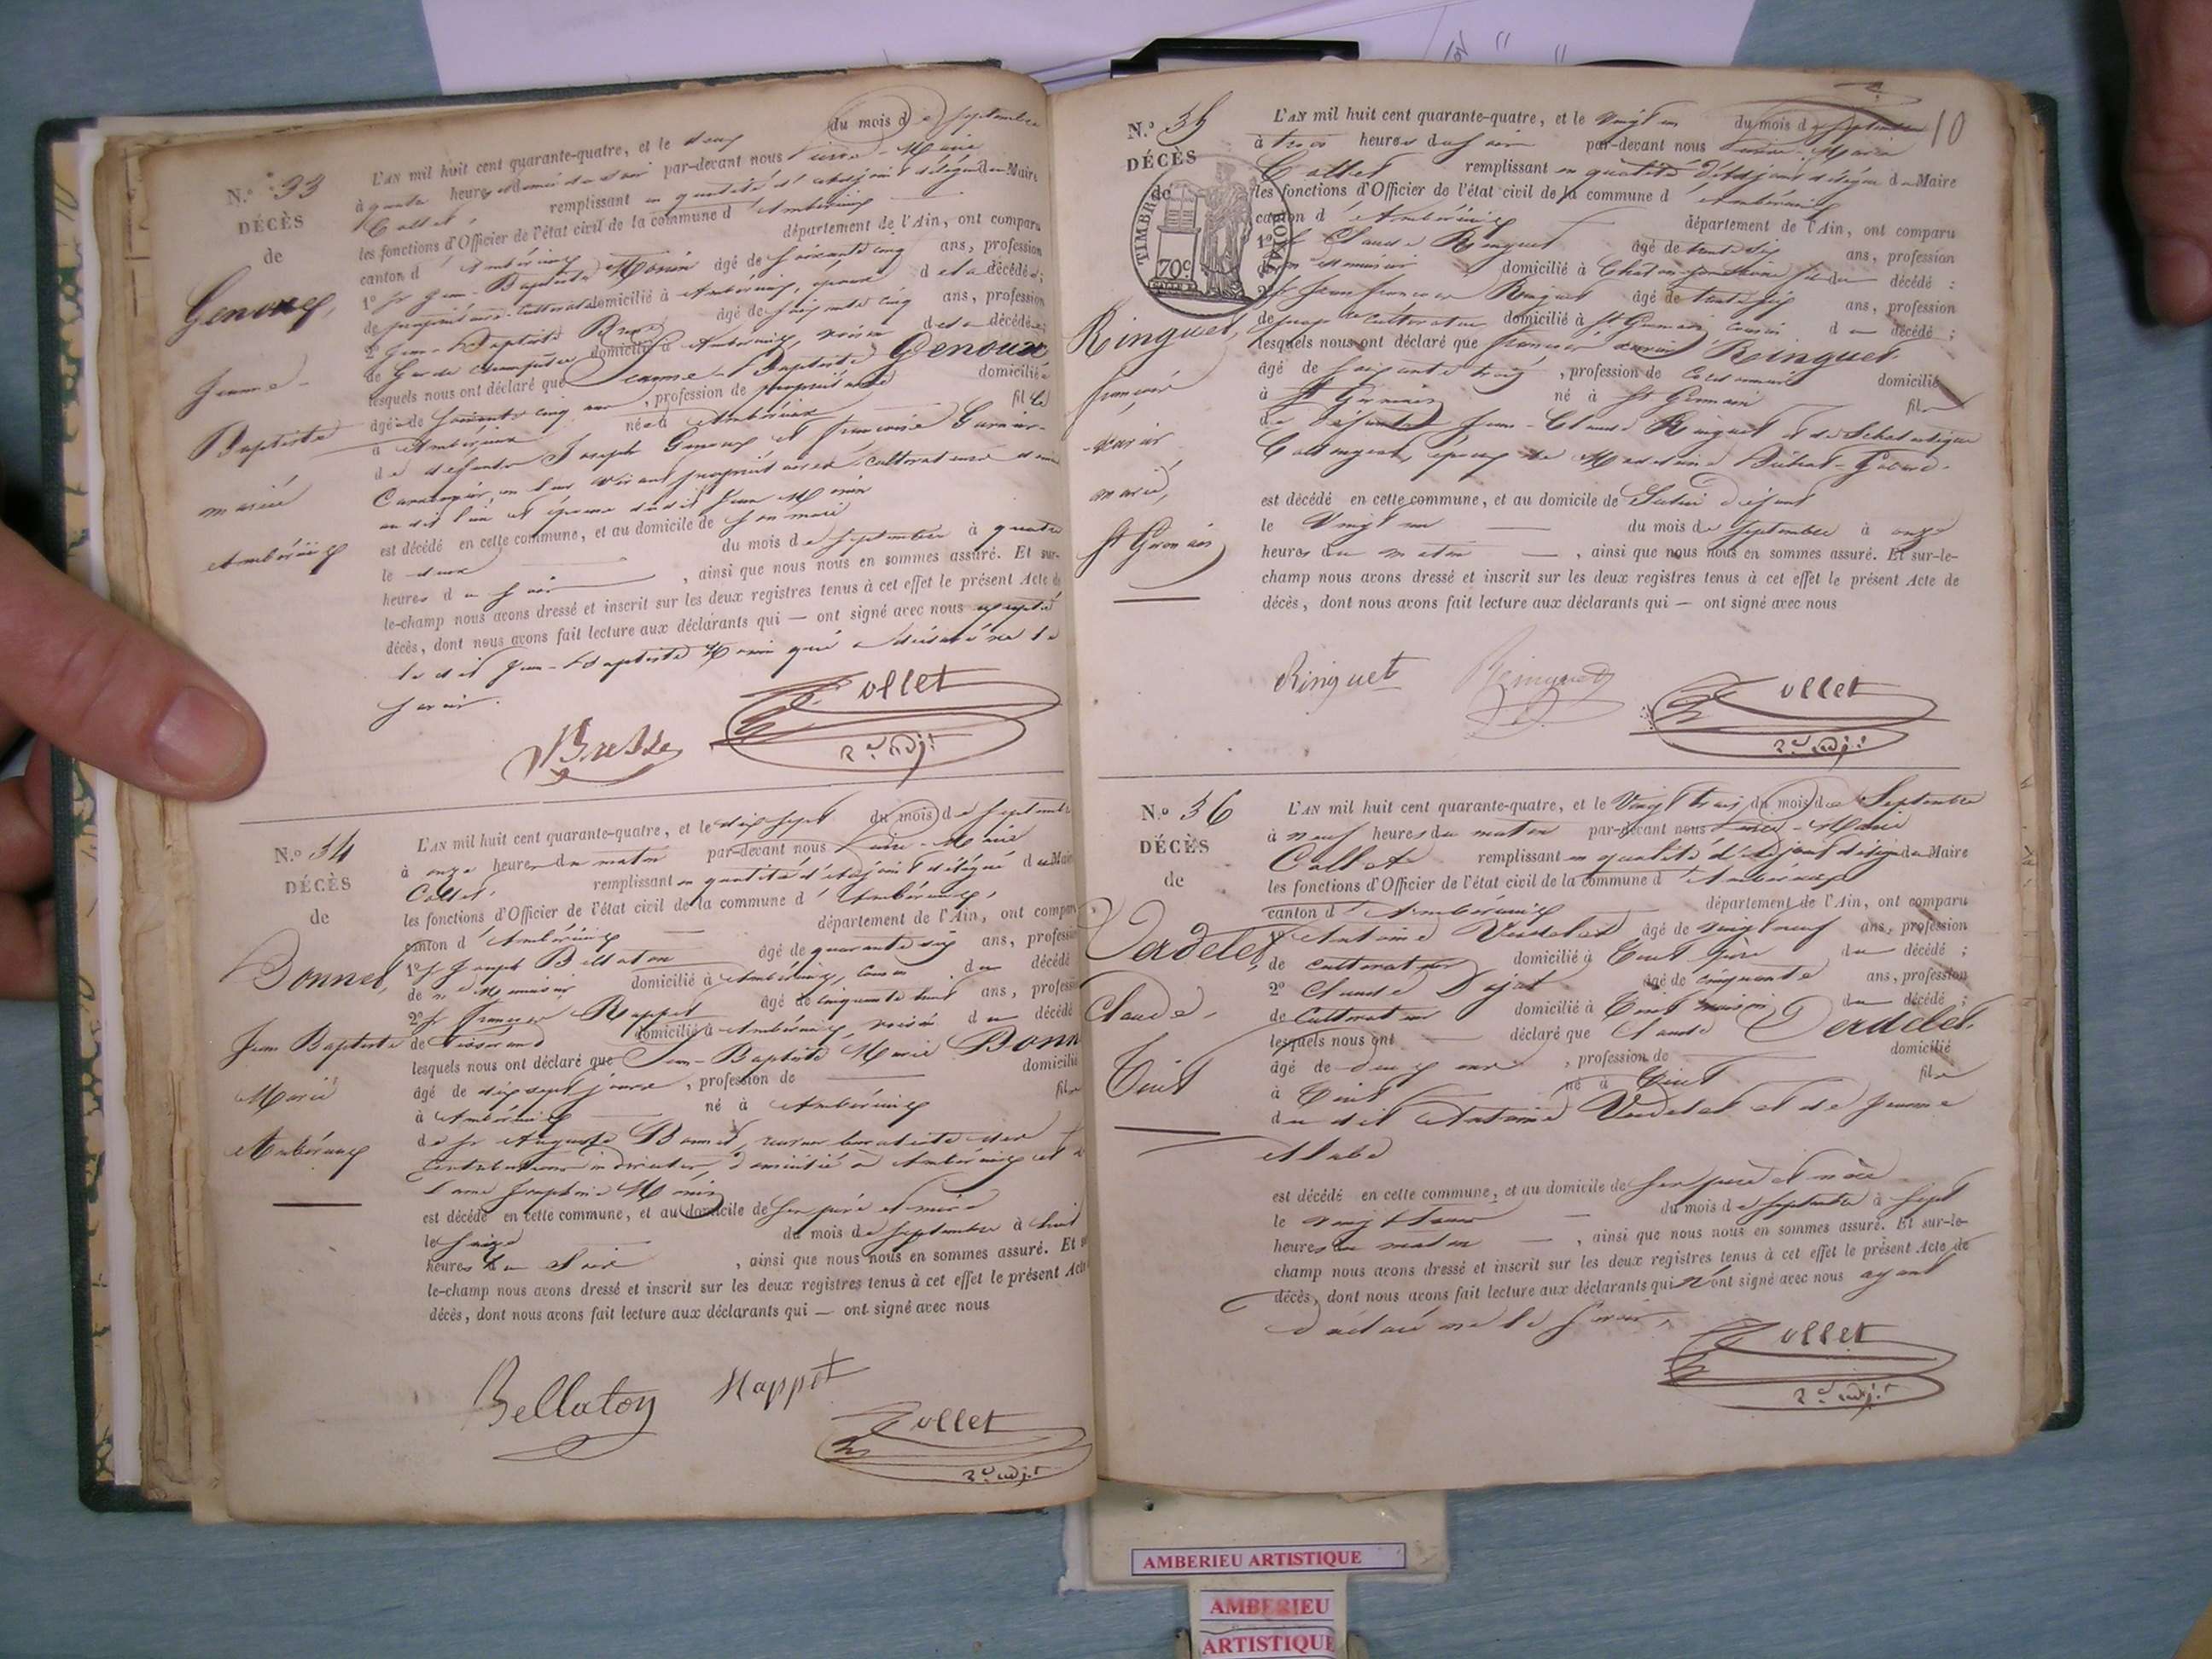 N.º 33
DÉCÈS
de
Genoux,
Jeanne-
Baptiste
mariée
Ambérieux
L'AN mil huit cent quarante-quatre, et le deux du mois de septembre
à quatre heures du soir par-devant nous Pierre-Marie
Collet remplissant en qualité d'adjoint délégué du Maire
les fonctions d'Officier de l'état civil de la commune d'Ambérieux
canton d'Ambérieux département de l'Ain, ont comparu
1º Sr Jean-Baptiste Morin âgé de soixante cinq ans, profession
de propriétaire cultivateur domicilié à Ambérieux, époux de la décédée;
2º Jean-Baptiste âgé de cinq ans, profession
de Garde Champêtre domicilié à Ambérieux, voisin de la décédée;
lesquels nous ont déclaré que Jeanne-Baptiste Genoux
âgée de soixante cinq ans, profession de propriétaire domiciliée
à Ambérieux née à Ambérieux fille
de défunts Joseph Genoux et Françoise
en leur vivant propriétaires cultivateurs
au dit lieu et épouse dudit Jean Morin
est décédé en cette commune, et au domicile de son mari
le deux du mois de septembre à quatre
heures du soir, ainsi que nous nous en sommes assuré. Et sur-
le-champ nous avons dressé et inscrit sur les deux registres tenus à cet effet le présent Acte de
décès, dont nous avons fait lecture aux déclarants qui — ont signé avec nous excepté
le dit Jean-Baptiste Morin qui a déclaré ne le
savoir.
Bresse Collet
2e adjt
N.º 34
DÉCÈS
de
Bonnet,
Jean Baptiste
Marie
Ambérieux
L'AN mil huit cent quarante-quatre, et le dix sept du mois de septembre
à onze heures du matin par-devant nous Pierre-Marie
Collet remplissant en qualité d'adjoint délégué du Maire
les fonctions d'Officier de l'état civil de la commune d'Ambérieux,
canton d'Ambérieux département de l'Ain, ont comparu
1º Sr Joseph Bellaton âgé de quarante six ans, profession
de domicilié à Ambérieux, cousin du décédé
2º Sr François Rappet âgé de cinquante huit ans, profession
de Tisserand domicilié à Ambérieux, voisin du décédé
lesquels nous ont déclaré que Jean-Baptiste Marie Bonn
âgé de dix sept jours, profession de domicilié
à Ambérieux né à Ambérieux fils
de Sr Auguste Bonnet, receveur buraliste des
contributions indirectes, domicilié à Ambérieux et de
dame Joséphine Morin
est décédé en cette commune, et au domicile de ses père et mère
le seize du mois de septembre à huit
heures du soir, ainsi que nous nous en sommes assuré. Et
le-champ nous avons dressé et inscrit sur les deux registres tenus à cet effet le présent Acte
décès, dont nous avons fait lecture aux déclarants qui — ont signé avec nous
Bellaton Rappet
Collet
2e adjt
10
N.º 35
DÉCÈS
de
TIMBRE ROYAL
70c
Ringuet,
françois
xavier
marié,
St Germain
L'AN mil huit cent quarante-quatre, et le vingt un du mois de septembre
à trois heures du soir par-devant nous Pierre-Marie
Collet remplissant en qualité d'adjoint délégué du Maire
les fonctions d'Officier de l'état civil de la commune d'Ambérieux
canton d'Ambérieux département de l'Ain, ont comparu
1º Sr Claude Ringuet âgé de trente six ans, profession
domicilié à fils du décédé :
2º Sr Jean françois Ringuet âgé de trente six ans, profession
de prop.re cultivateur domicilié à St Germain, cousin du décédé ;
lesquels nous ont déclaré que françois xavier Ringuet
âgé de soixante trois, profession de cordonnier domicilié
à St Germain né à St Germain fils
de défunts Jean-Claude Ringuet et de Scholastique
époux de
est décédé en cette commune, et au domicile de lui défunt
le vingt un du mois de septembre à onze
heures du matin —, ainsi que nous nous en sommes assuré. Et sur-le-
champ nous avons dressé et inscrit sur les deux registres tenus à cet effet le présent Acte de
décès, dont nous avons fait lecture aux déclarants qui — ont signé avec nous
Ringuet Ringuet Collet
2e adjt
N.º 36
DÉCÈS
de
Verdelet,
Claude,
Tiret
L'AN mil huit cent quarante-quatre, et le vingt trois du mois de Septembre
à neuf heures du matin par-devant nous Pierre-Marie
Collet remplissant en qualité d'adjoint délégué du Maire
les fonctions d'Officier de l'état civil de la commune d'Ambérieux
canton d'Ambérieux département de l'Ain, ont comparu
1º Antoine Verdelet âgé de vingt neuf ans, profession
de cultivateur domicilié à Tiret père du décédé ;
2º Claude Dujat âgé de cinquante ans, profession
de Cultivateur domicilié à Tiret voisin du décédé ;
lesquels nous ont — déclaré que Claude Verdelet,
âgé de deux ans, profession de domicilié
à Tiret né à Tiret fils
du dit Antoine Verdelet et de Jeanne
est décédé en cette commune, et au domicile de ses père et mère
le vingt trois — du mois de septembre à sept
heures du matin —, ainsi que nous nous en sommes assuré. Et sur-le-
champ nous avons dressé et inscrit sur les deux registres tenus à cet effet le présent Acte de
décès, dont nous avons fait lecture aux déclarants qui n'ont signé avec nous ayant
déclaré ne le savoir,
Collet
2e adjt
AMBERIEU ARTISTIQUE
AMBERIEU
ARTISTIQUE